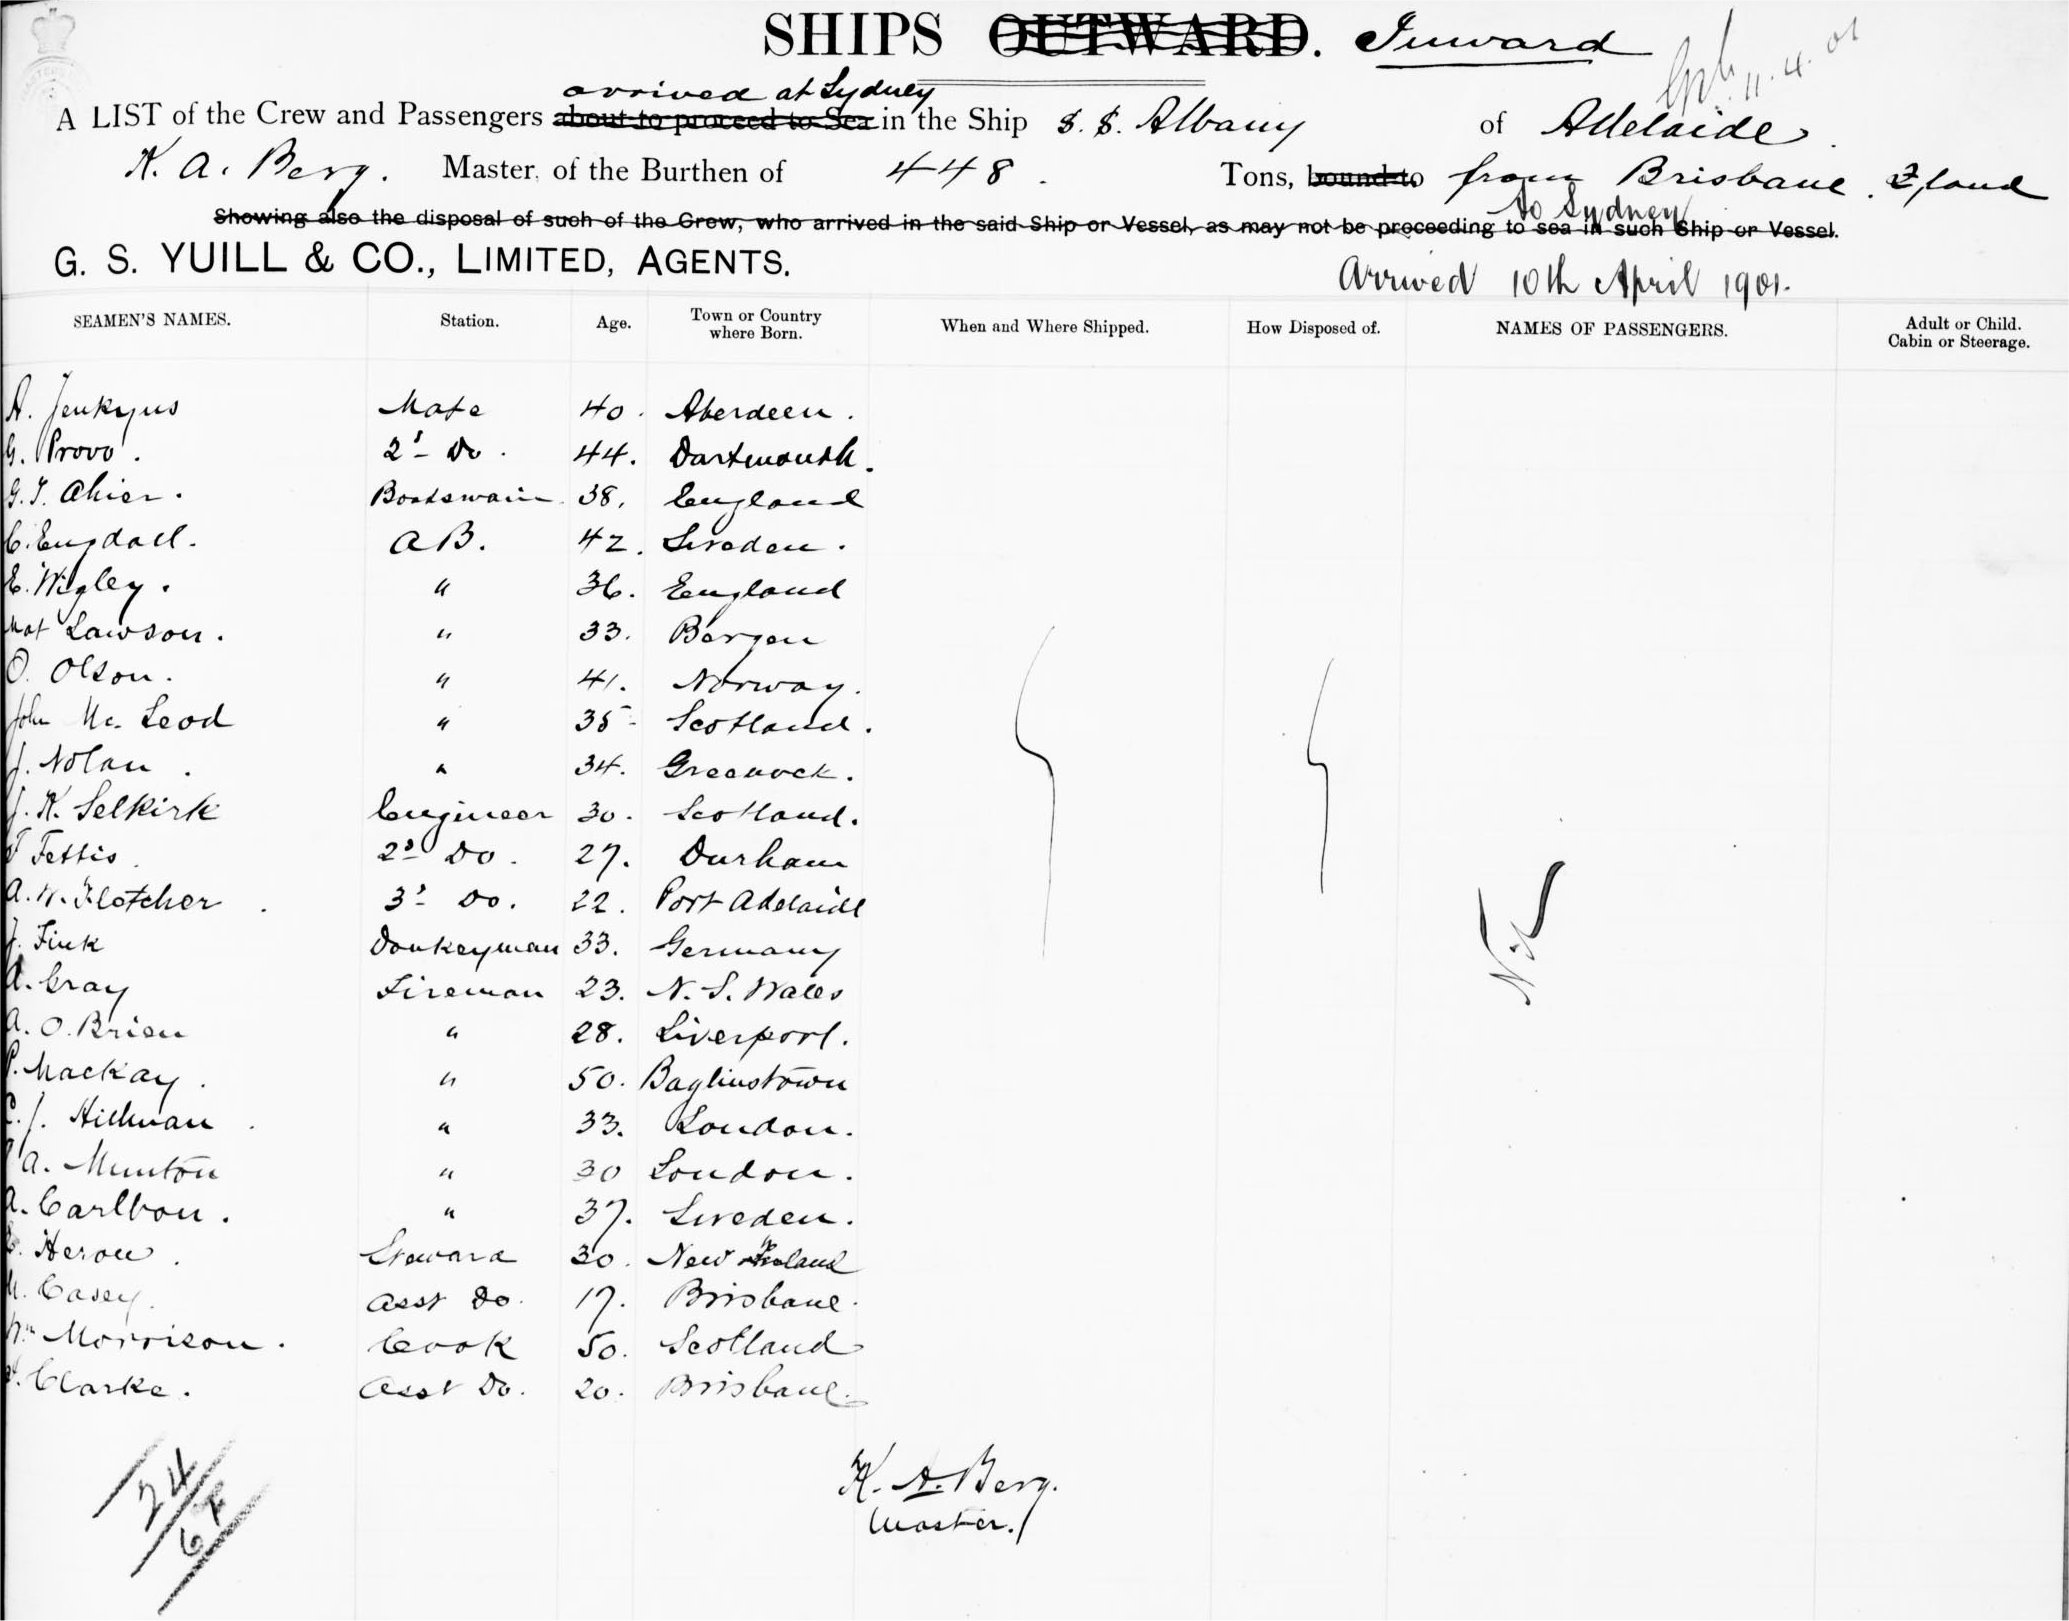 SHIPS OUTWARD. Inward
11.4.01
arrived at Sydney
A LIST of the Crew and Passengers about to proceed to Sea in the Ship S. S. Albany of Adelaide.
K. A. Berg. Master, of the Burthen of 448. Tons, bound to from Brisbane. Q'land
to Sydney
Showing also the disposal of such of the Crew, who arrived in the said Ship or Vessel, as may not be proceeding to sea in such Ship or Vessel.
G. S. YUILL & CO., LIMITED, AGENTS.
Arrived 10th April 1901.
SEAMEN'S NAMES. Station. Age. Town or Country where Born. When and Where Shipped. How Disposed of. NAMES OF PASSENGERS. Adult or Child. Cabin or Steerage.
A. Jenkyns Mate 40. Aberdeen.
G. Provo. 2d Do. 44. Dartmouth.
G. T. Ahier. Boatswain 38. England
C. Engdall. AB. 42. Sweden.
E. Wigley. " 36. England
Mat Lawson. " 33. Bergen
O. Olson. " 41. Norway.
John Mc. Leod " 35 Scotland.
J. Nolan. " 34. Greenock.
J. K. Selkirk Engineer 30. Scotland.
Fettis. 2d Do. 27. Durham
A. W. Fletcher. 3d Do. 22. Port Adelaide
J. Fink Donkeyman 33. Germany
A. Gray Fireman 23. N. S. Wales
A. O. Brien " 28. Liverpool.
P. Mackay. " 50. Baglinstown
C. J. Hillman. " 33. London.
A. Munton " 30 London.
A. Carlbon. " 37. Sweden.
Heron. Steward 30. New Zealand
Casey. Asst Do. 17. Brisbane.
Wm Morrison. Cook 50. Scotland
Clarke. Asst Do. 20. Brisbane.
Nil
24
K. A. Berg.
Master.